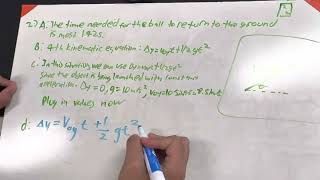 2) A. The time needed for the ball to return to the ground
is most 1.42s.
B: 4th kinematic equation: Δy = V₀yt + 1/2gt²
C: In this situation we can use Δy = V₀yt + 1/2gt²
since the object is being launched with constant
acceleration. Δy = 0, g = 10m/s²,
Plug in values now
d: Δy = V₀y t + 1/2 gt²